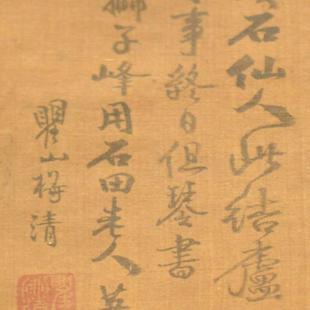 石仙人此结廬
事終日但琴書
獅子峰用石田老人
瞿山梅清